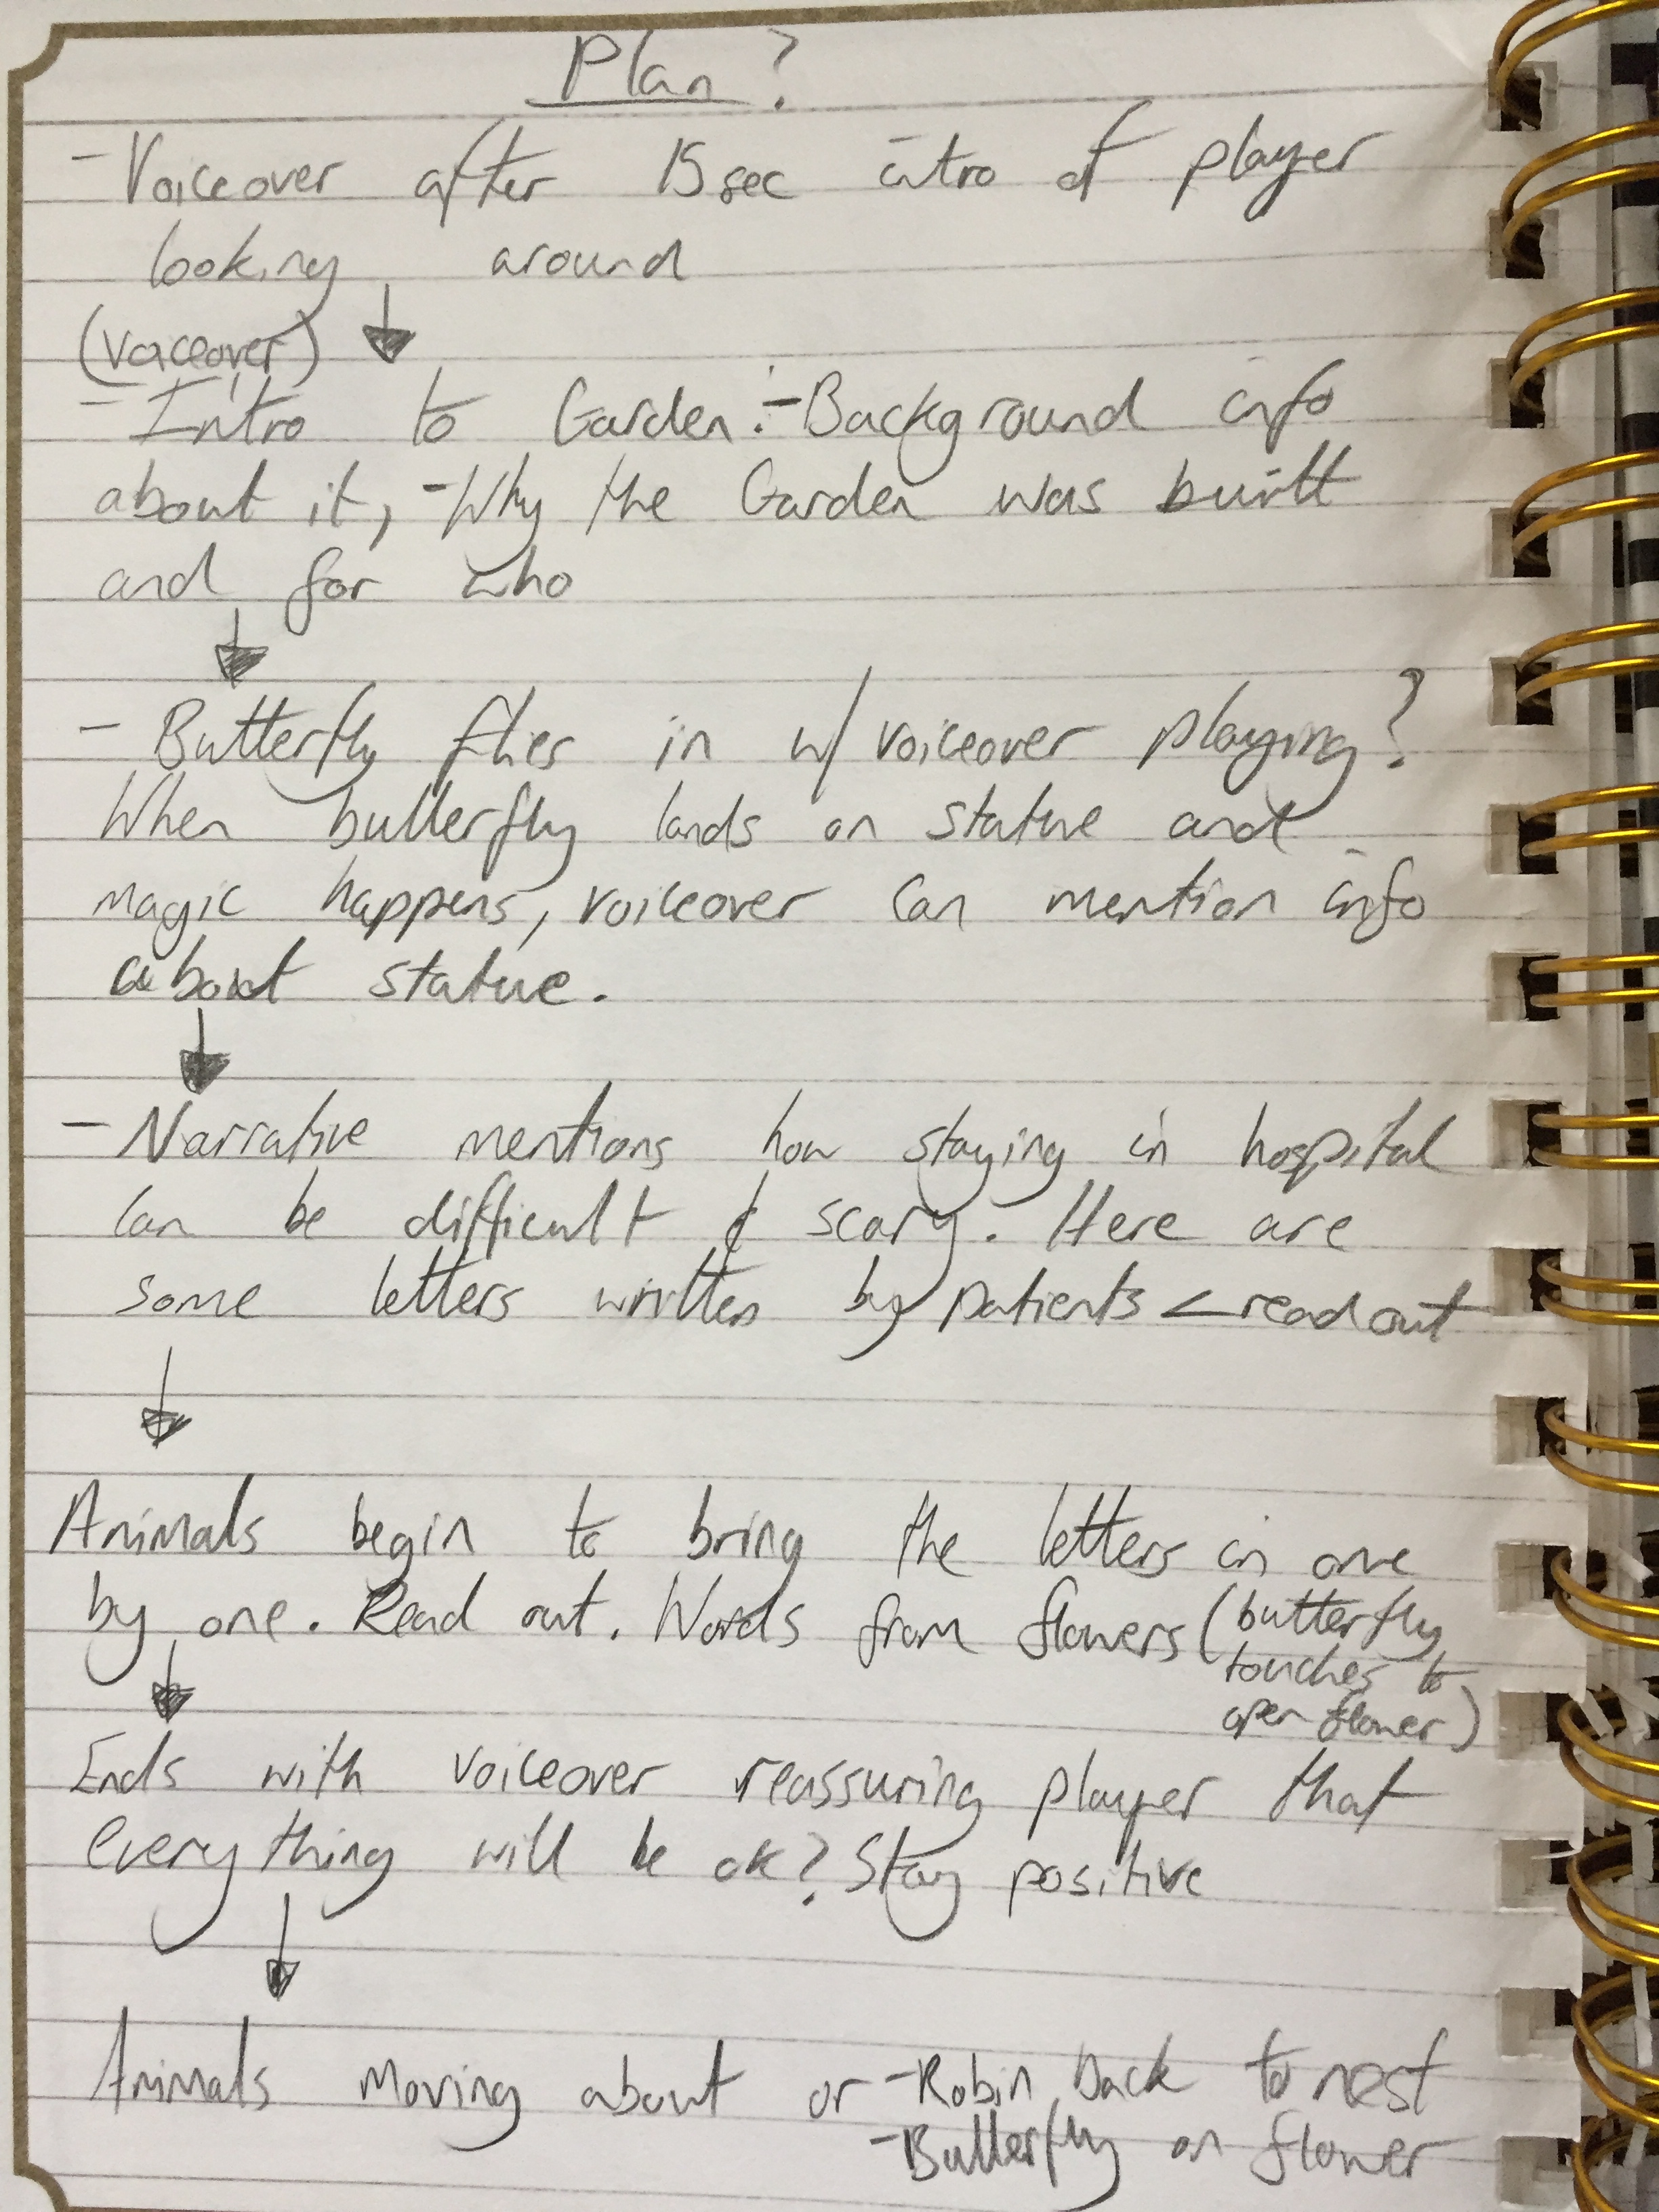 Plan?
- Voiceover after 15sec intro of player
looking around
(voiceover)
- Intro to Garden:- Background info
about it, - Why the Garden was built
and for who
- Butterfly flies in w/ voiceover playing?
When butterfly lands on statue and
magic happens, voiceover can mention info
about statue.
- Narrative mentions how staying in hospital
can be difficult & scary. Here are
some letters written by patients < read out
Animals begin to bring the letters in one
by one. Read out. Words from flowers (butterfly
touches to
open flower)
Ends with voiceover reassuring player that
everything will be ok? Stay positive
Animals moving about or - Robin back to nest
- Butterfly on flower